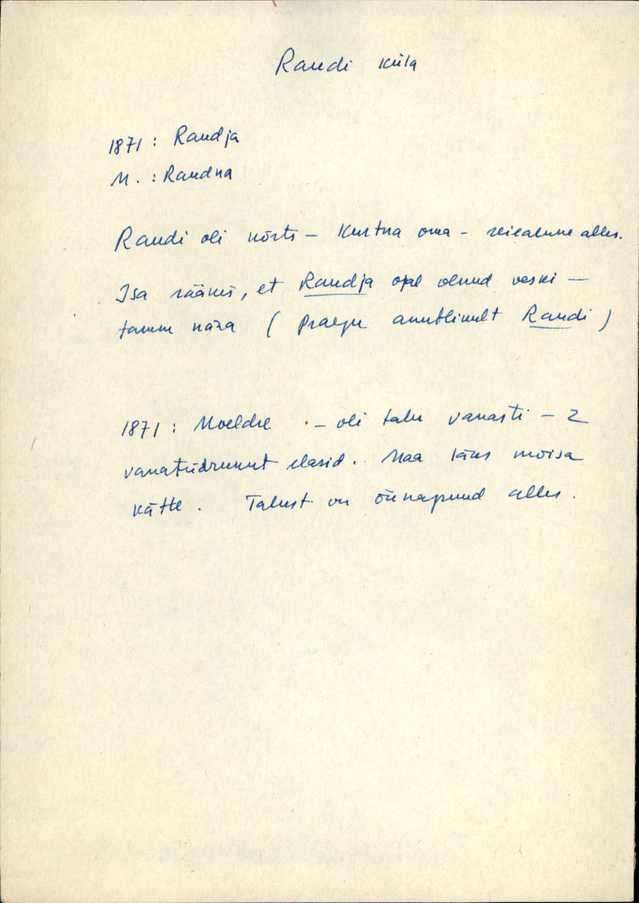 Raudi küla
1871 : Raudja
M. : Raudna
Raudi oli kõrts – Kurtna oma – alles.
Isa rääkis, et Raudja ojal olnud veski –
tamm näha ( Praegu ametlikult Raudi )
1871 : Moeldre – oli talu vanasti – 2
vanatüdrukut elasid. Maa läks mõisa
kätte. Talust on õunapuud alles.